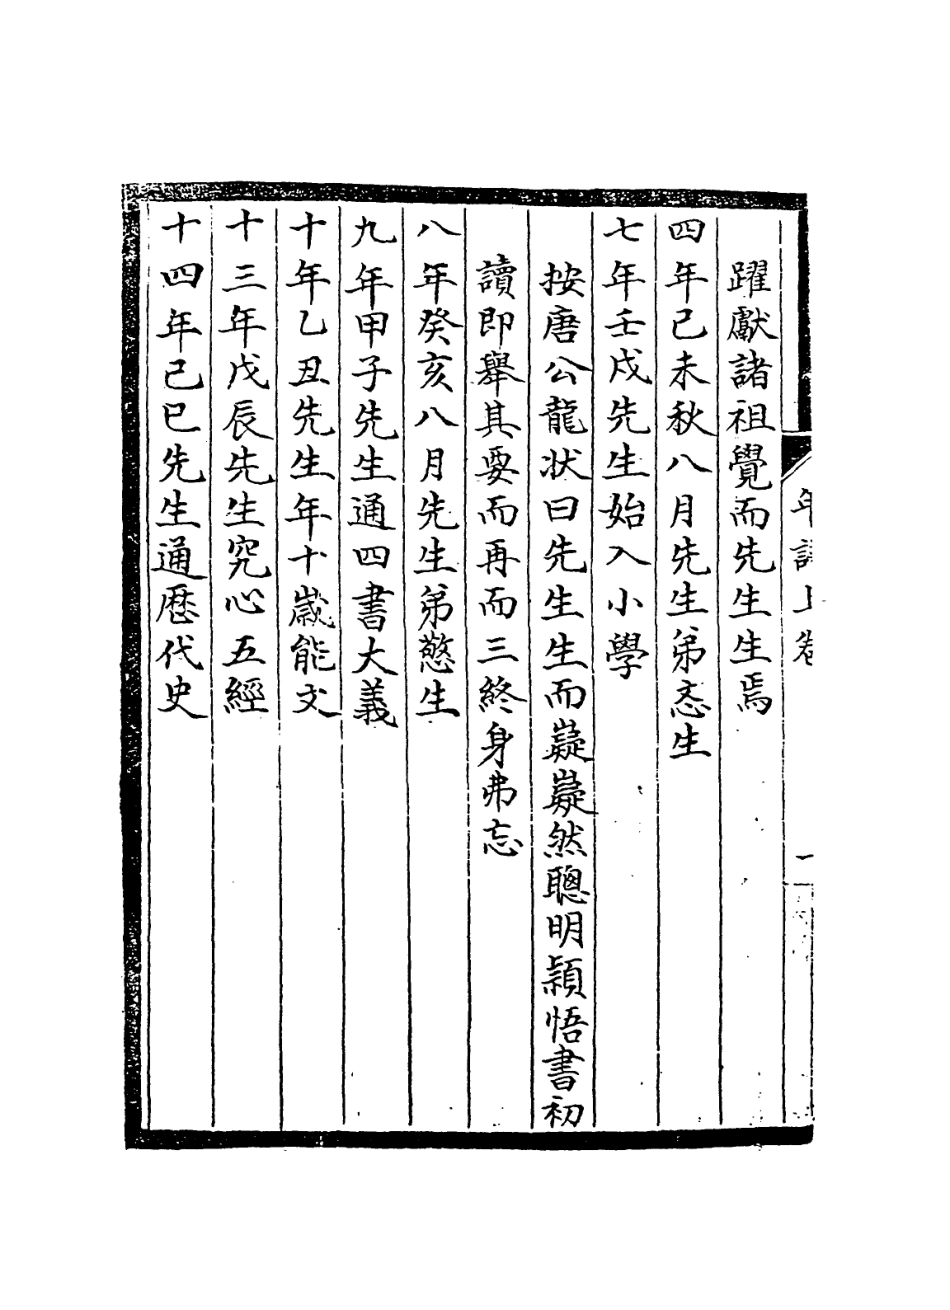 躍獻諸祖覺而先生生焉
四年己未秋八月先生弟忞生
七年壬戌先生始入小學
按唐公龍状曰先生生而嶷嶷然聰明頴悟書初
讀即舉其要而再而三終身弗忘
八年癸亥八月先生弟憖生
九年甲子先生通四書大義
十年乙丑先生年十歲能文
十三年戊辰先生究心五經
十四年己巳先生通歴代史
年譜上卷
一